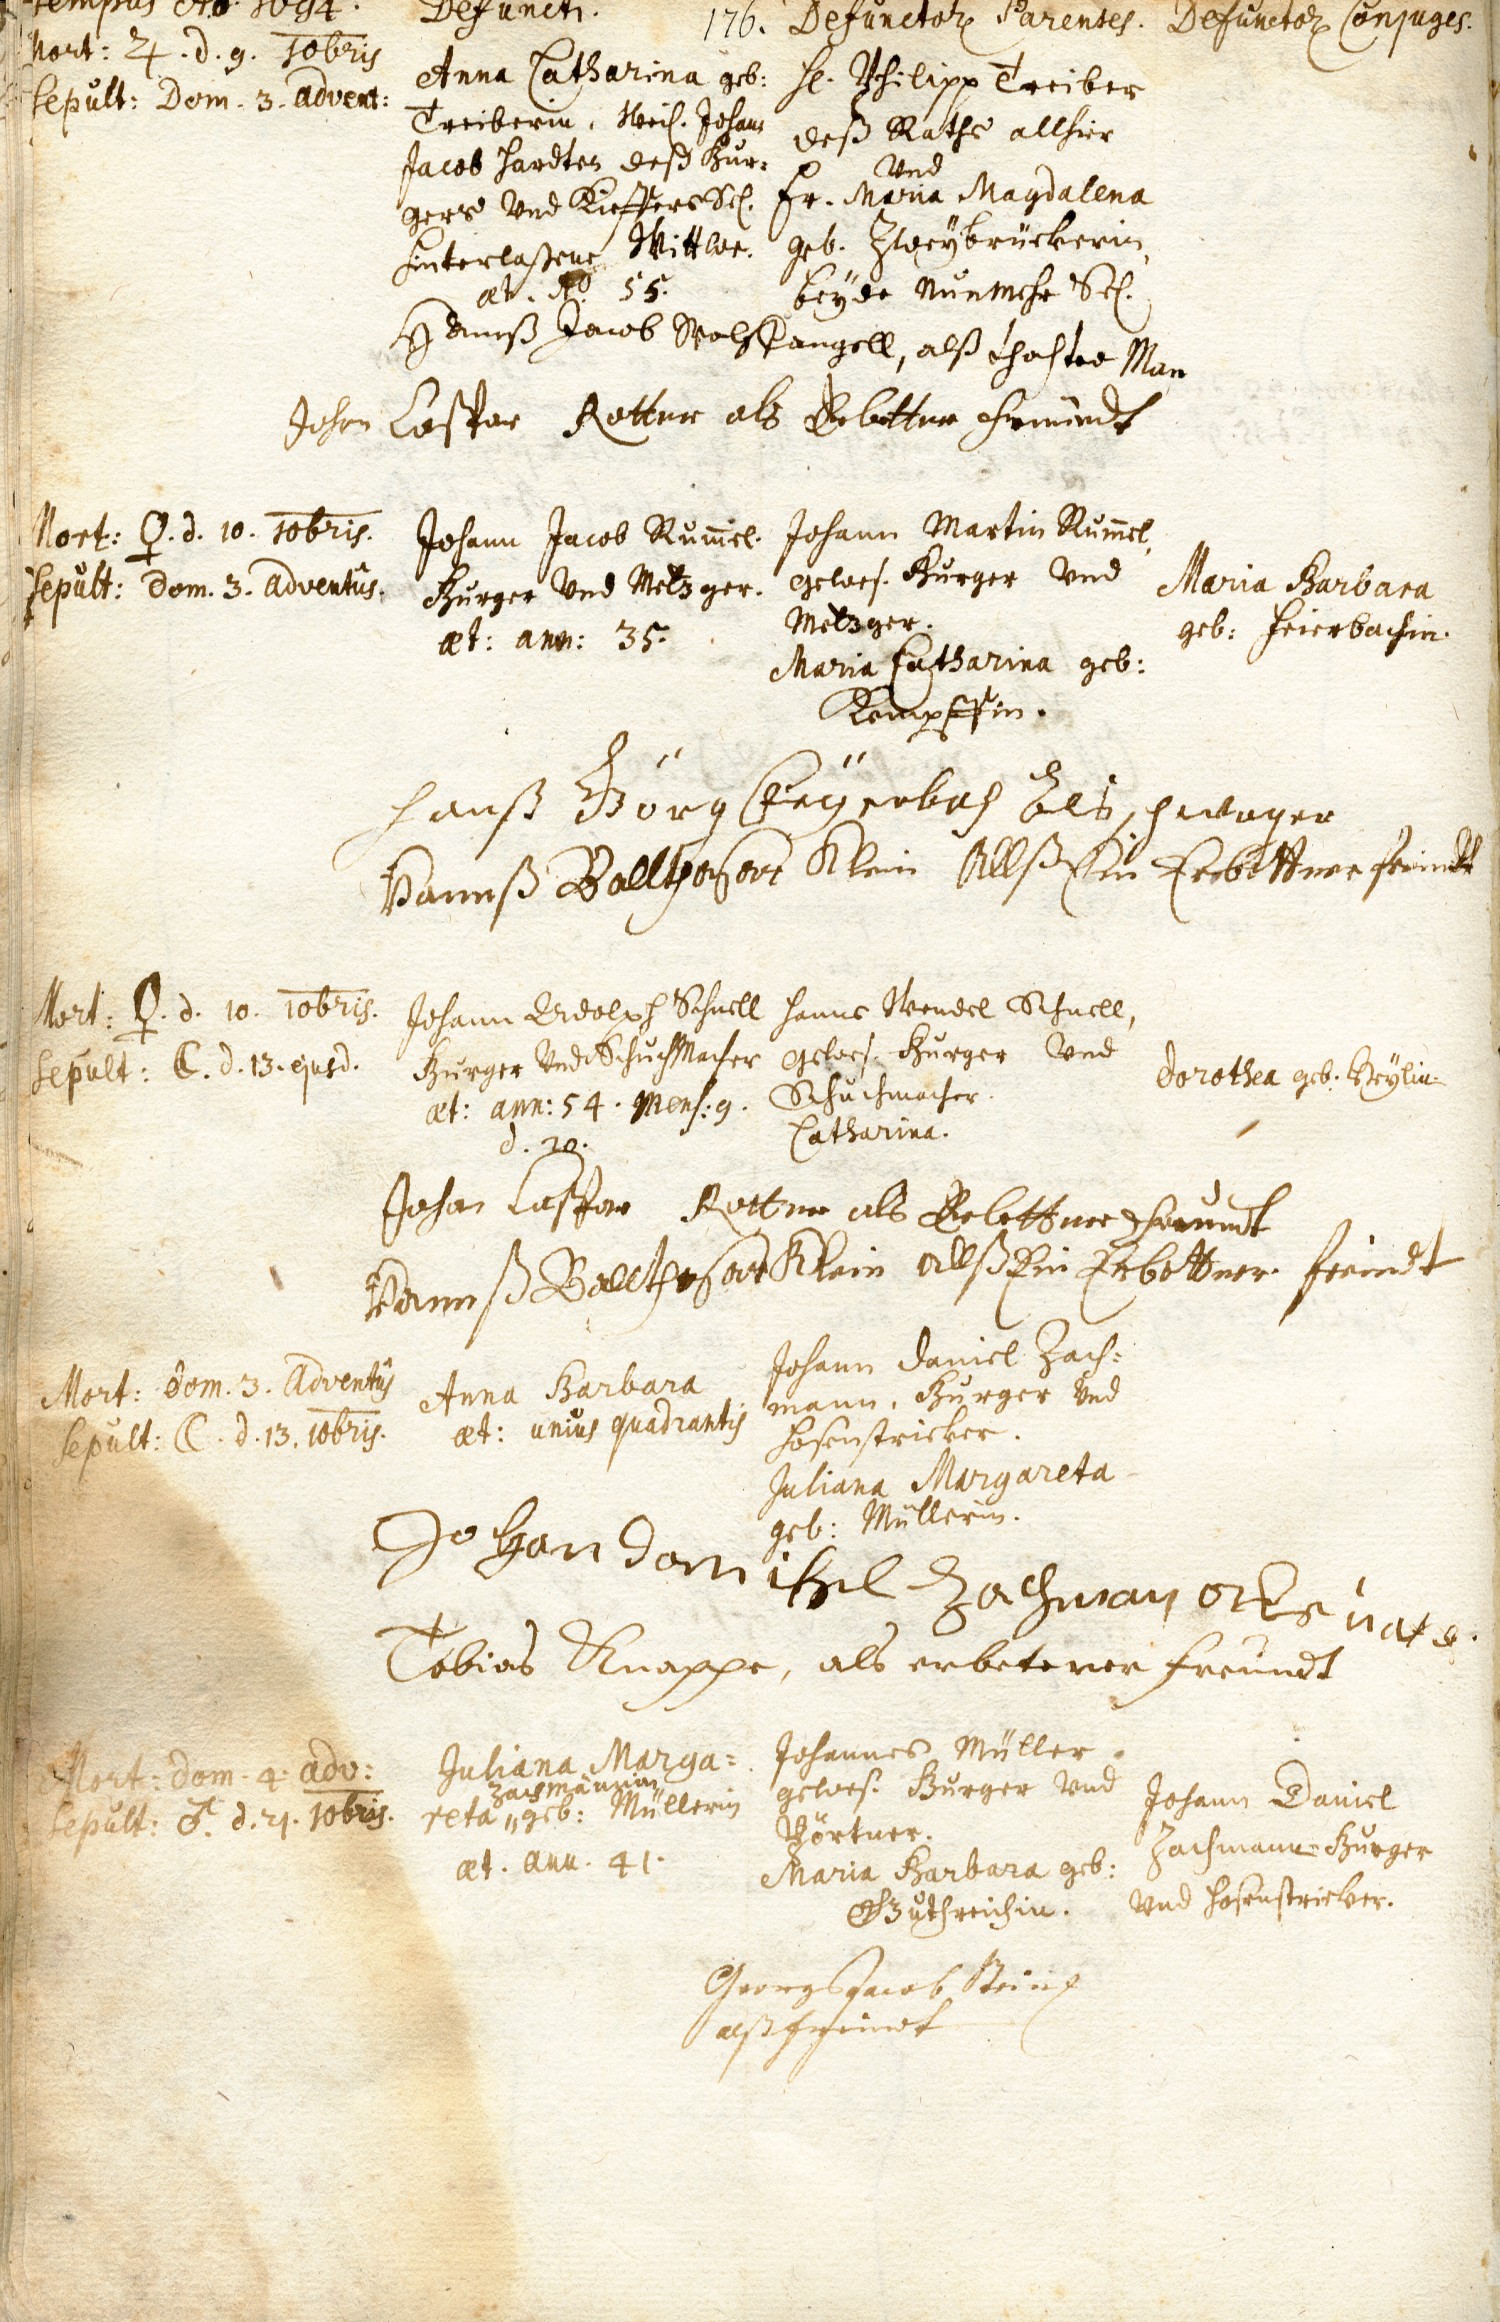 Tempus Ao. 1694. Defuncti. 176. Defunctor. Parentes. Defunctor. Conjuges.
Mort: ♃. d. 9. 10bris
Sepult: Dom. 3. Advent:
Anna Catharina geb:
Treiberin, Weil. Johann
Jacob Hardten deß Bur=
gers Und Kieffers Sel.
hinterlaßene Wittwe.
æt. Ao. 55.
H. Philipp Treiber
deß Raths allhier
Und
Fr. Maria Magdalena
geb. Zweybrückerin,
beyde nunmehr Sel.
Hannß Jacob alß Man
Johan Caspar Rotter als Erbettner Freundt
Mort: ♀. d. 10. 10bris.
Sepult: Dom. 3. Adventus.
Johann Jacob Rum̄el.
Burger Und Metzger.
æt: ann: 35.
Johann Martin Rum̄el,
gewes. Burger Und
Metzger.
Maria Catharina geb:
Kempffin.
Maria Barbara
geb: Feierbachin.
Hanß Görg Feyerbach als schwager
Hannß Ballthasar Klein Allß Ein Erbettner freindt
Mort: ♀. d. 10. 10bris.
Sepult: ☾. d. 13. ejusd.
Johann Rudolph Schnell
Burger Und Schuchmacher
æt: ann: 54. Mens: 9.
d. 20.
Hanns Wendel Schnell,
gewes. Burger Und
Schuchmacher.
Catharina.
Dorothea geb. Beylin
Johan Caspar Rotter als Erbettner Freundt
Hannß Ballthasar Klein Allß Ein Erbettner freindt
Mort: Dom. 3. Adventus
Sepult: ☾. d. 13. 10bris.
Anna Barbara
æt: unius quadrantis
Johann Daniel Zach=
mann, Burger Und
Hosenstricker.
Juliana Margareta
geb: Müllerin.
Johan Daniehel Zachman
Tobias Knappe, als erbetener Freundt
Mort: Dom. 4. Adv:
Sepult: ♂. d. 21. 10bris.
Juliana Marga=
Zachmännin
reta „ geb: Müllerin
æt. ann. 41.
Johannes Müller
gewes. Burger Und
Pörtner.
Maria Barbara geb:
Guthreichin.
Johann Daniel
Zachmann Burger
Und Hosenstricker.
Georg Jacob
alß freindt